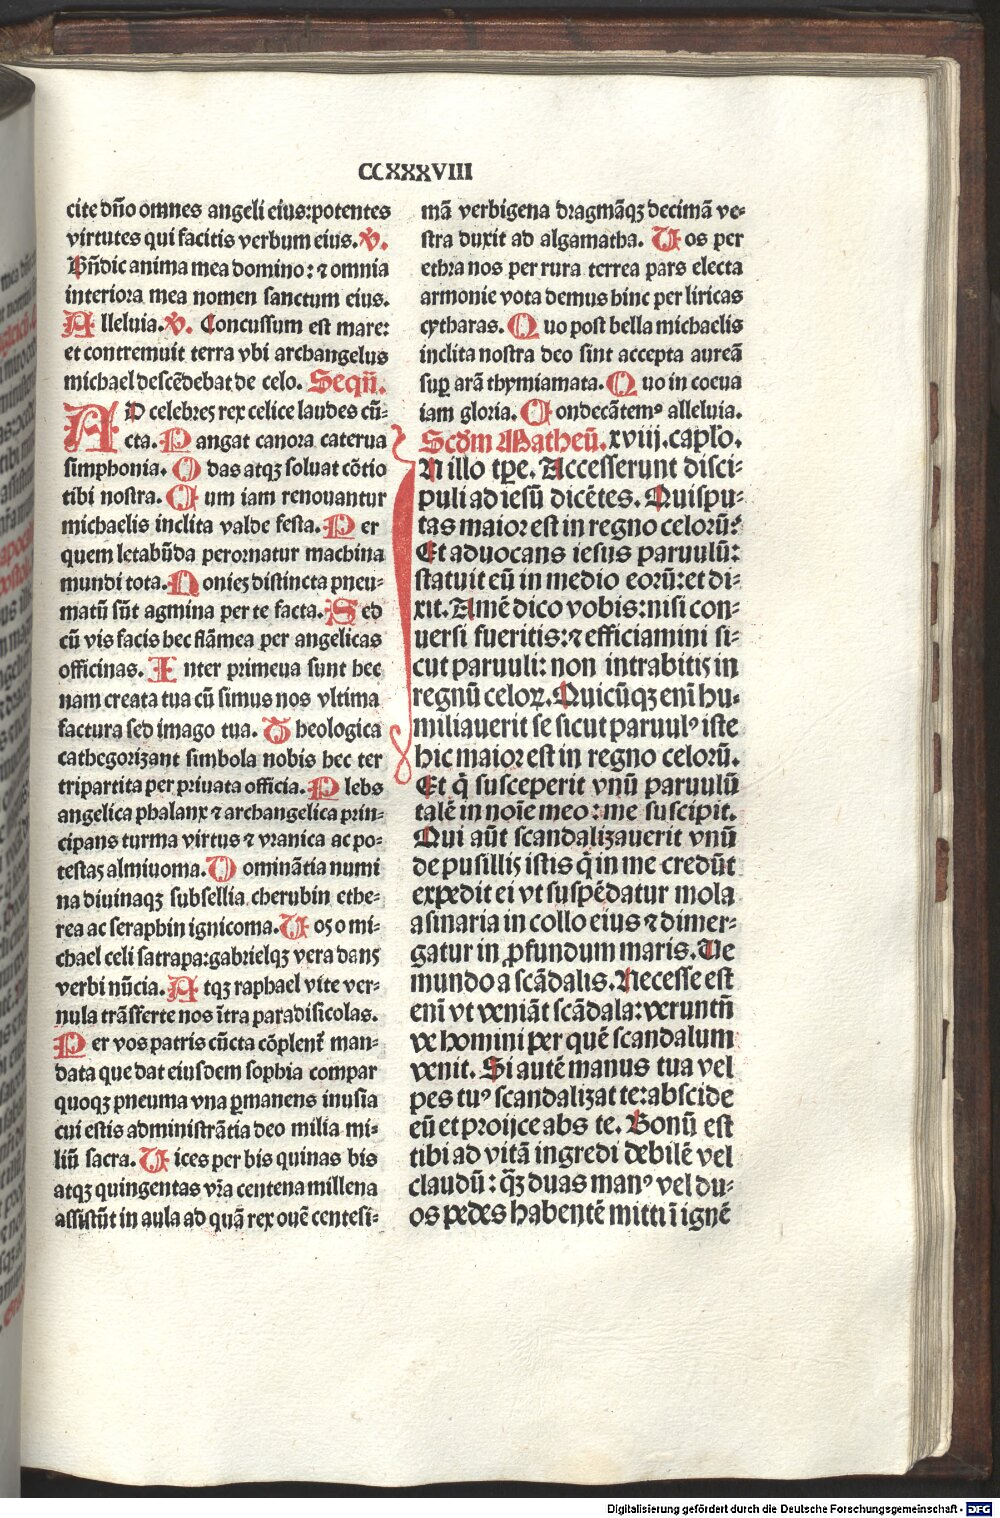 CCXXXVIII
cite dño omnes angeli eius:potentes
virtutes qui facitis verbum eius. V̷.
Bñdic anima mea domino: ⁊ omnia
interiora mea nomen sanctum eius.
Alleluia. V̷. Concussum est mare:
et contremuit terra vbi archangelus
michael descẽdebat de celo. Seqñ.
AD celebres rex celice laudes cũ⸗
cta. Pangat canora caterua
simphonia. Odas atqꝫ soluat cõtio
tibi nostra. Cum iam renouantur
michaelis inclita valde festa. Per
quem letabũda perornatur machina
mundi tota. Nonies distincta pneu⸗
matũ sũt agmina per te facta. Sed
cũ vis facis hec flãmea per angelicas
officinas. Inter primeua sunt hec
nam creata tua cũ simus nos vltima
factura sed imago tua. Theologica
cathegorizant simbola nobis hec ter
tripartita per priuata officia. Plebs
angelica phalanx ⁊ archangelica prin⸗
cipans turma virtus ⁊ vranica ac po⸗
testas almiuoma. Dominãtia numi
na diuinaqꝫ subsellia cherubin ethe⸗
rea ac seraphin ignicoma. Uos o mi⸗
chael celi satrapa:gabrielqꝫ vera dans
verbi nũcia. Atqꝫ raphael vite ver⸗
nula trãsferte nos ĩtra paradisicolas.
Per vos patris cũcta cõplent᷑ man⸗
data que dat eiusdem sophia compar
quoqꝫ pneuma vna ꝑmanens inusia
cui estis administrãtia deo milia mi⸗
liũ sacra. Uices per bis quinas bis
atqꝫ quingentas vr̃a centena millena
assistũt in aula ad quã rex ouẽ centesi⸗
mã verbigena dragmãqꝫ decimã ve⸗
stra duxit ad algamatha. Uos per
ethra nos per rura terrea pars electa
armonie vota demus hinc per liricas
cytharas. Quo post bella michaelis
inclita nostra deo sint accepta aureã
suꝑ arã thymiamata. Quo in coeua
iam gloria. Condecãtemꝰ alleluia.
Scd̃m Matheũ. xviij. caplo.
IN illo tꝑe. Accesserunt disci⸗
puli ad iesũ dicẽtes. Quis pu⸗
tas maior est in regno celorũ?
Et aduocans iesus paruulũ:
statuit eũ in medio eorũ:et di⸗
xit. Amẽ dico vobis:nisi con⸗
uersi fueritis:⁊ efficiamini si⸗
cut paruuli: non intrabitis in
regnũ celoꝝ. Quicũqꝫ enĩ hu⸗
miliauerit se sicut paruulꝰ iste
hic maior est in regno celorũ.
Et q̃ susceperit vnũ paruulũ
talẽ in noĩe meo: me suscipit.
Qui aũt scandalizauerit vnũ
de pusillis istis q̃ in me credũt
expedit ei vt suspẽdatur mola
asinaria in collo eius ⁊ dimer⸗
gatur in ꝓfundum maris. Ue
mundo a scãdalis. Necesse est
enĩ vt veniãt scãdala: veruntñ
ve homini per quẽ scandalum
venit. Si autẽ manus tua vel
pes tuꝰ scandalizat te:abscide
eũ et proijce abs te. Bonũ est
tibi ad vitã ingredi debilẽ vel
claudũ: q̃ꝫ duas manꝰ vel du⸗
os pedes habentẽ mitti ĩ ignẽ
Digitalisierung gefördert durch die Deutsche Forschungsgemeinschaft - DFG